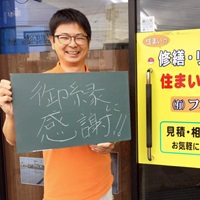 御縁に
感謝!!
住まいの
修繕・リ
住まい
見積・相
お気軽に